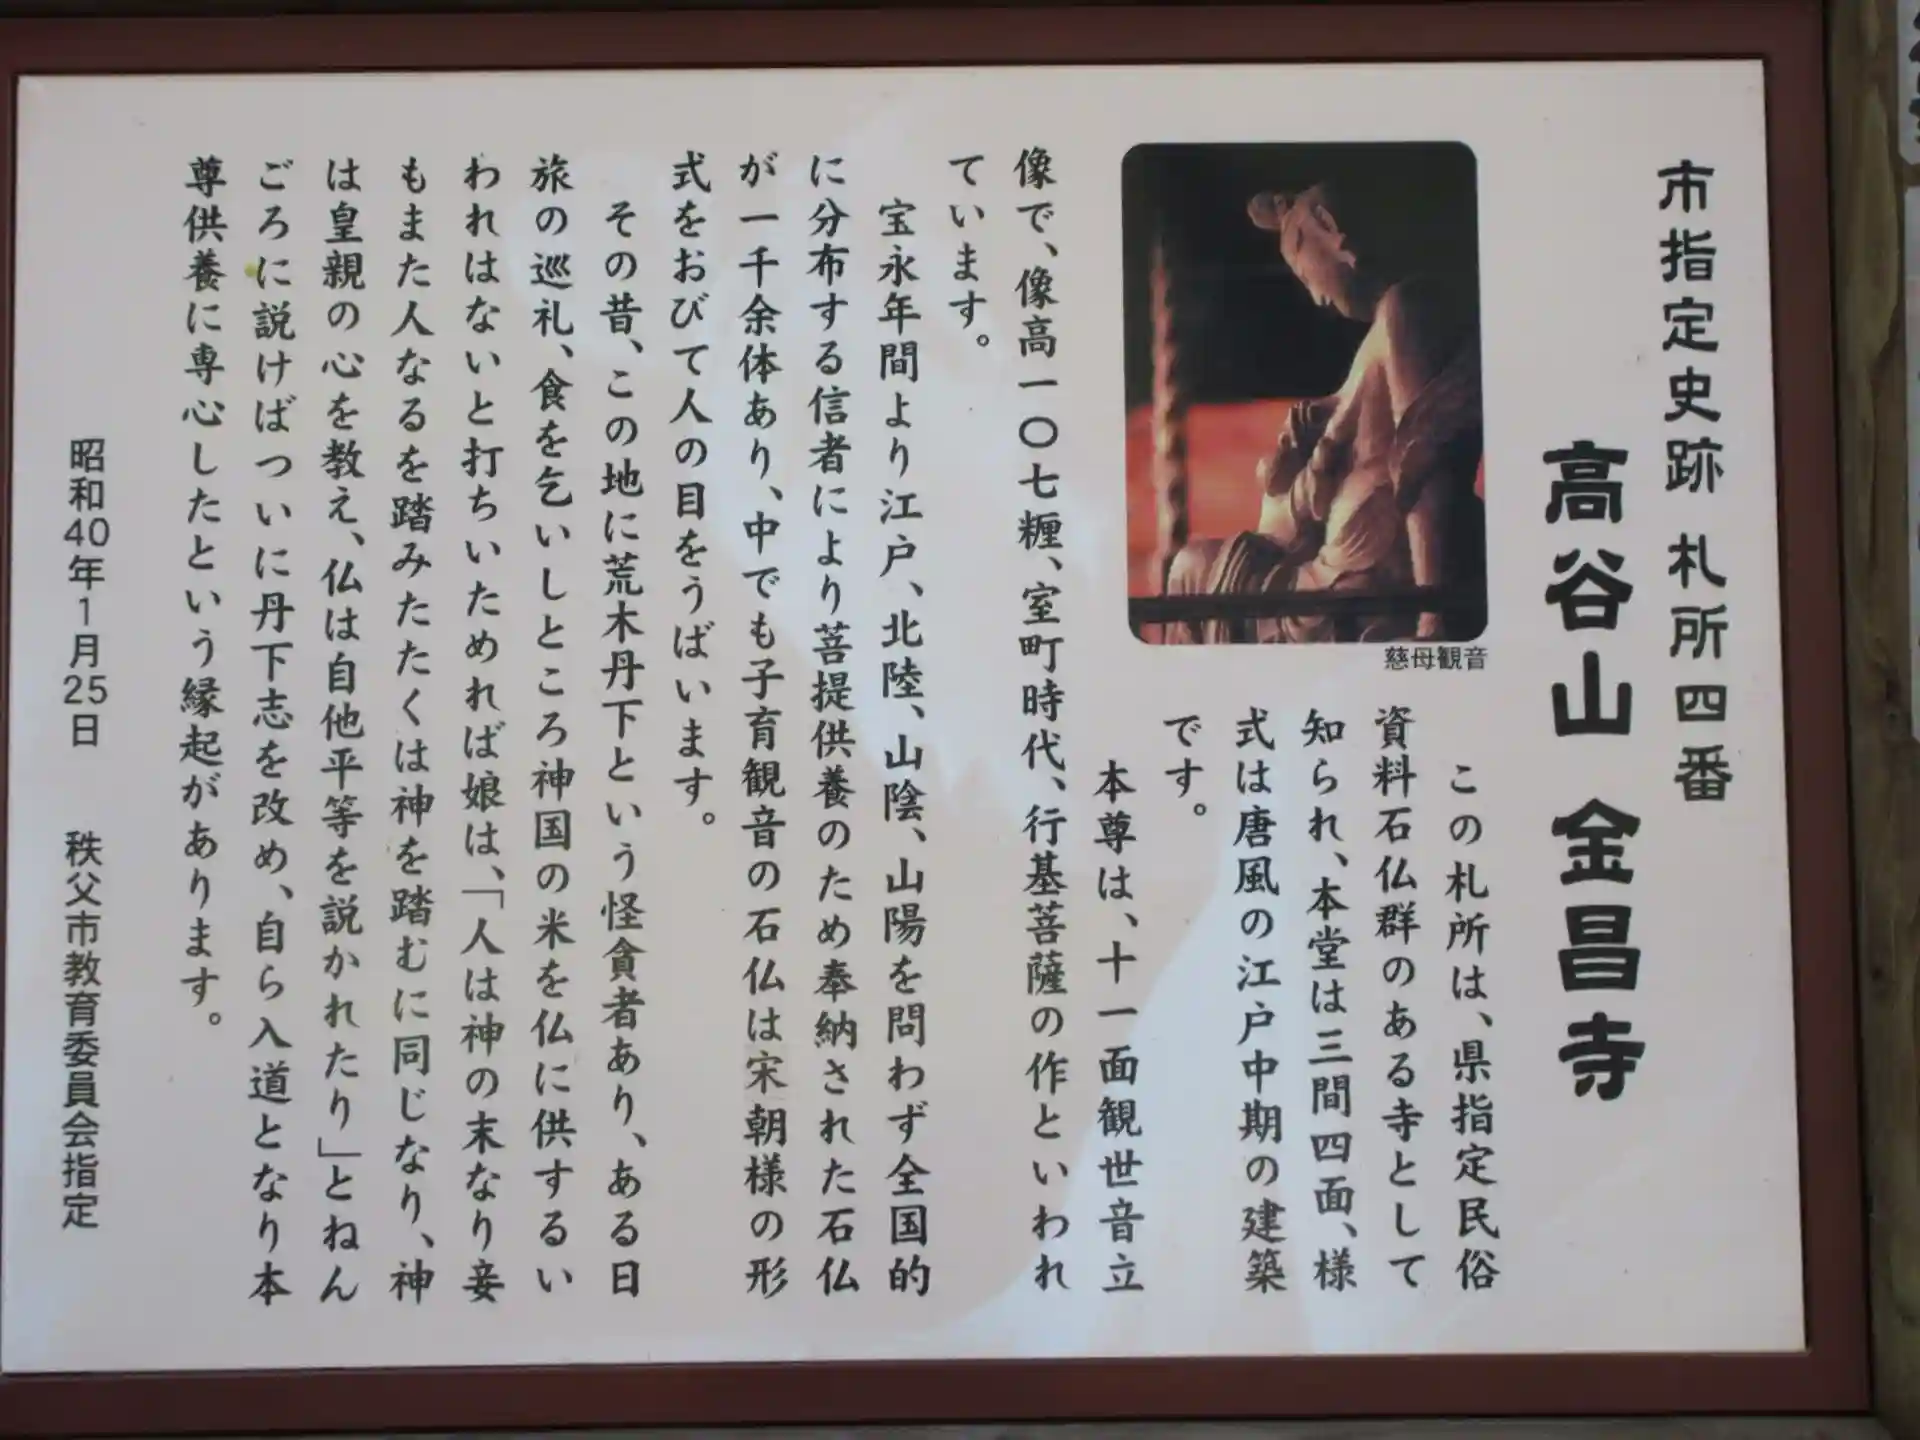 市指定史跡 札所四番
高谷山 金昌寺
この札所は、県指定民俗
資料石仏群のある寺として
知られ、本堂は三間四面、様
式は唐風の江戸中期の建築
です。
本尊は、十一面観世音立
像で、像高一〇七糎、室町時代、行基菩薩の作といわれ
ています。
慈母観音
宝永年間より江戸、北陸、山陰、山陽を問わず全国的
に分布する信者により菩提供養のため奉納された石仏
が一千余体あり、中でも子育観音の石仏は宋朝様の形
式をおびて人の目をうばいます。
その昔、この地に荒木丹下という怪貪者あり、ある日
旅の巡礼、食を乞いしところ神国の米を仏に供するい
われはないと打ちいためれば娘は、「人は神の末なり妾
もまた人なるを踏みたたくは神を踏むに同じなり、神
は皇親の心を教え、仏は自他平等を説かれたり」とねん
ごろに説けばついに丹下志を改め、自ら入道となり本
尊供養に専心したという縁起があります。
昭和40年1月25日 秩父市教育委員会指定